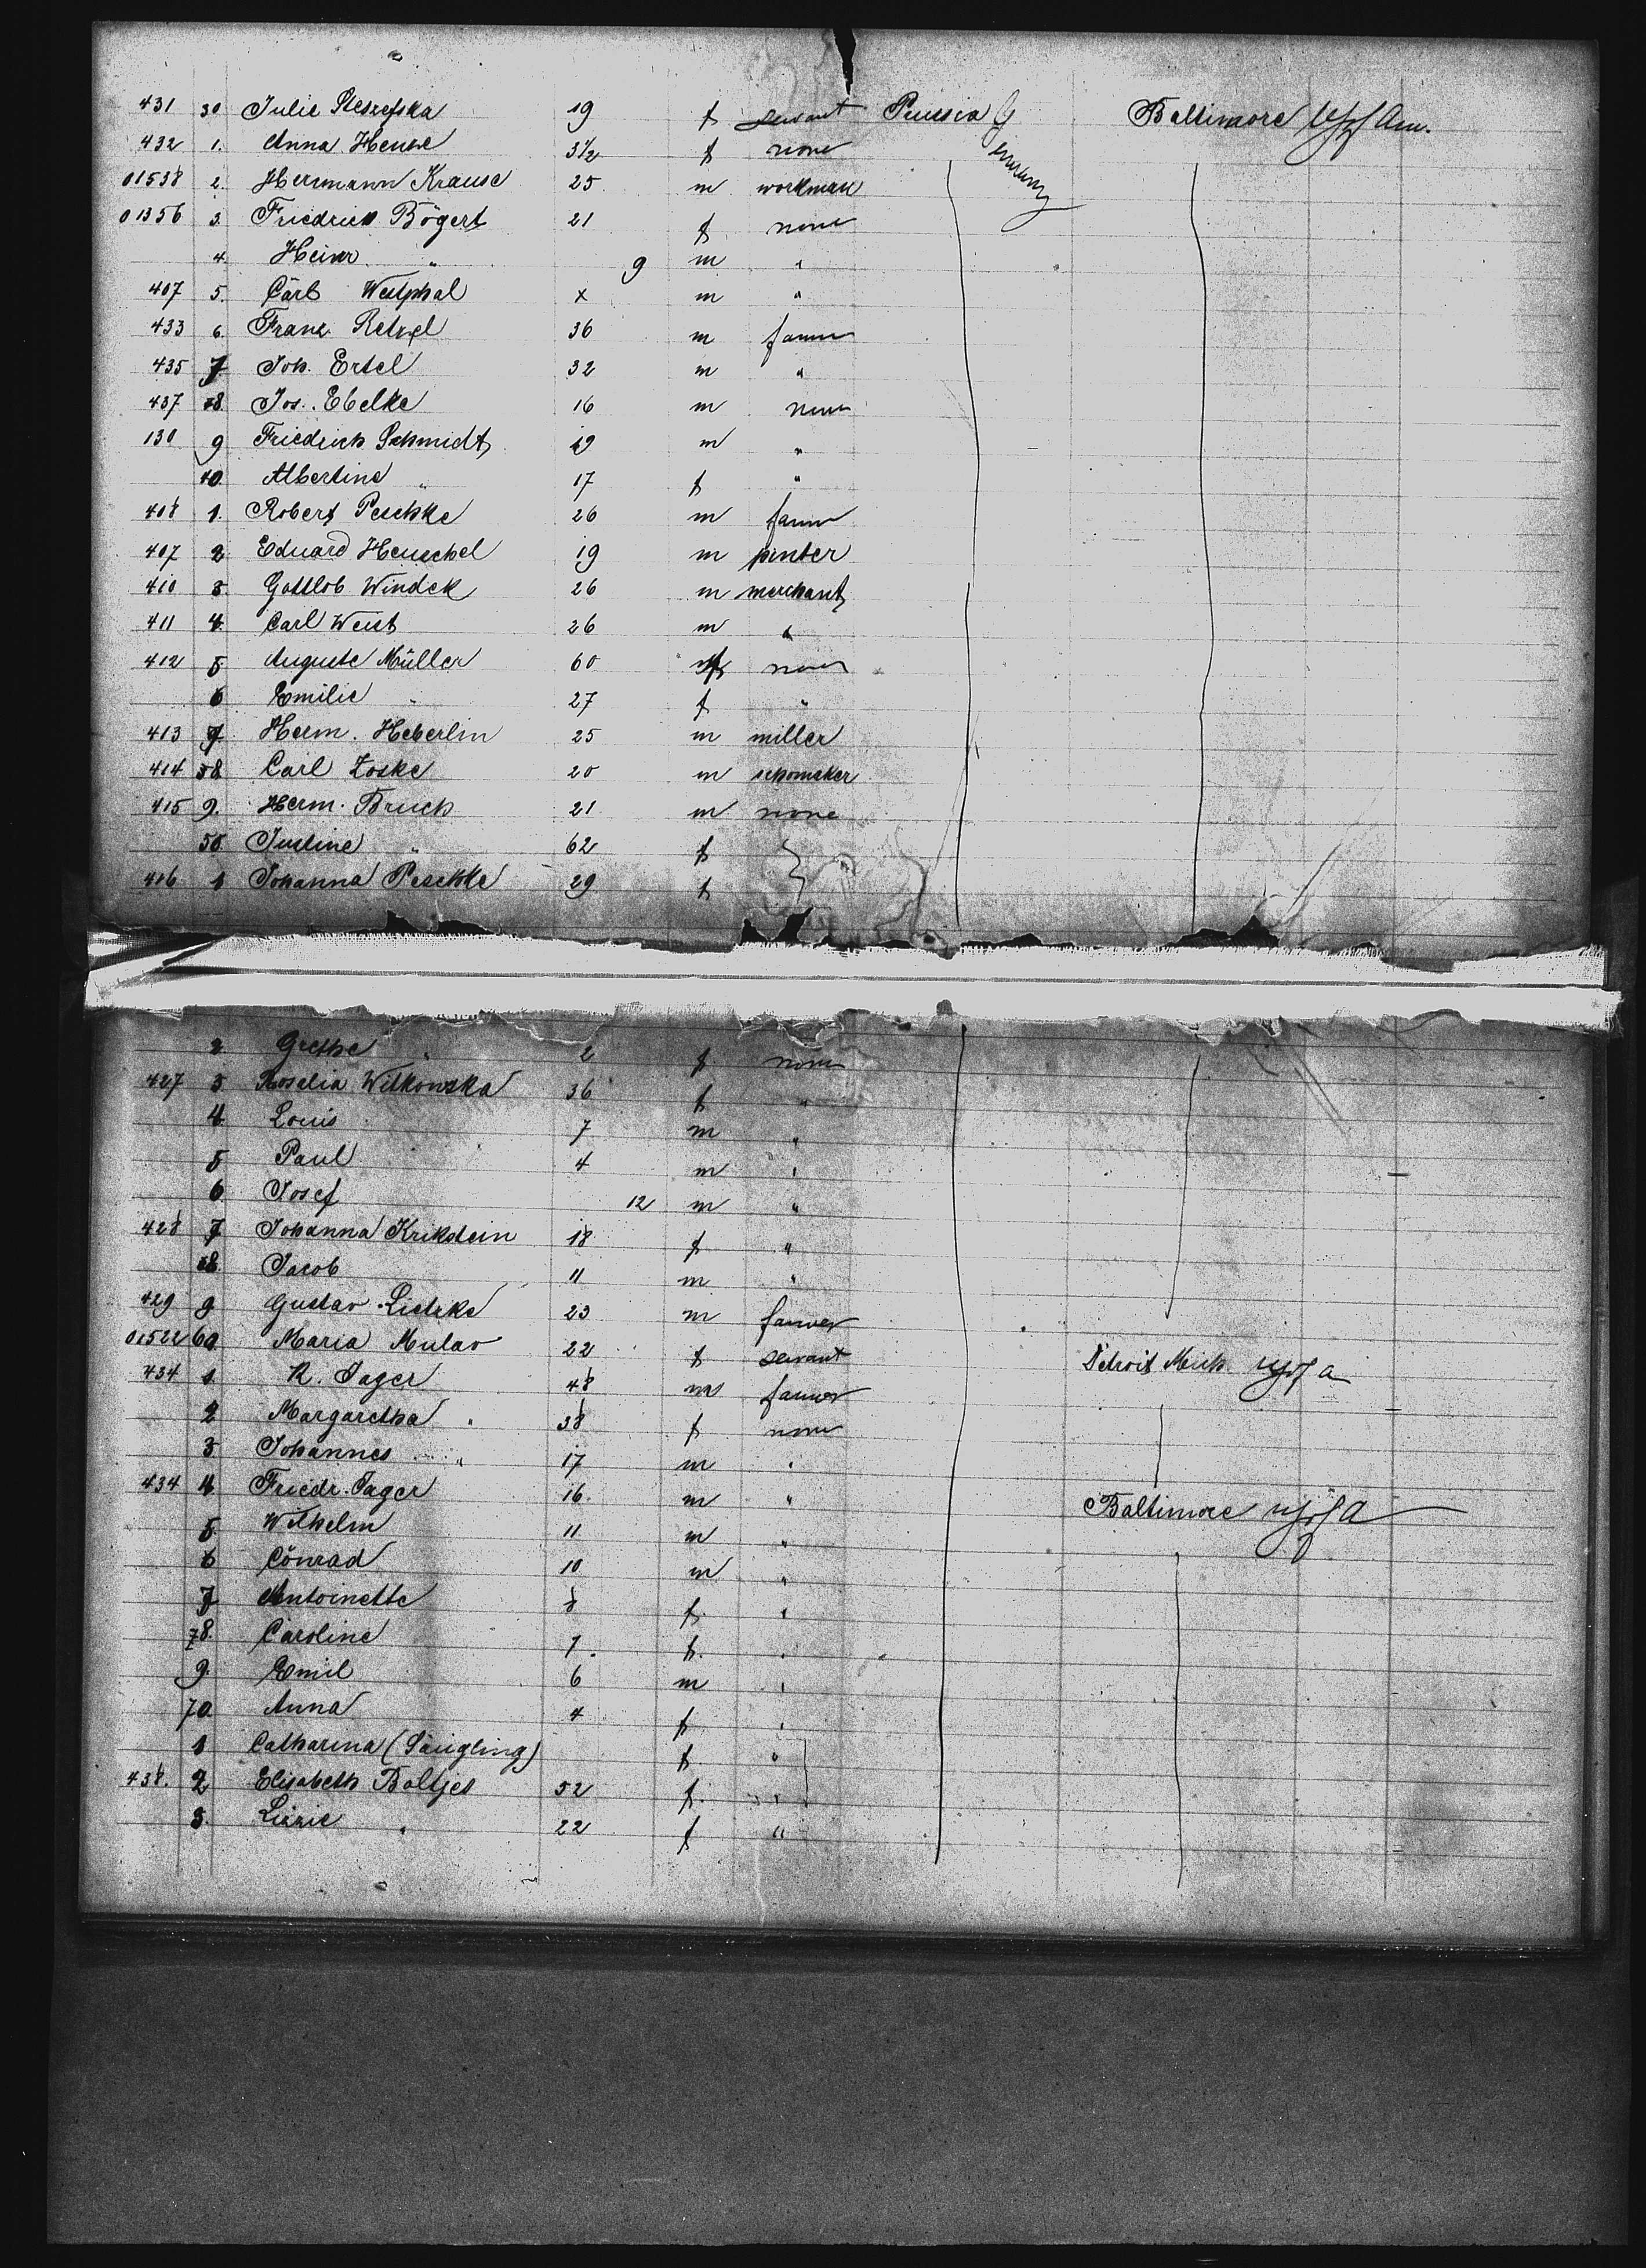 431 30 Julie 19 f servant Prussia Germany Baltimore
432 1. Anna Hense 3 1/2 f none
01538 2. Herrmann Krause 25 m workman
01356 3. Friedrich Bögert 21 f. none
4. Heinr. " 9 m "
407 5. Carl Westphal x m "
433 6. Franz Retzel 36 m farmer
435 7 Joh. Ertel 32 m "
437 8. Jos. Ebelke 16 m none
130 9 Friedrich Schmidt 19 m "
40. Albertine " 17 f "
408 1. Robert Peschke 26 m farmer
407 2 Eduard Henschel 19 m printer
410 3. Gottlob Windek 26 m merchant
411 4. Carl Weist 26 m "
412 5 Auguste Müller 60 f none
6 Emilie " 27 f "
413 7 Herm. Heberlin 25 m miller
414 8 Carl Zoske 20 m schomaker
415 9. Herm. Bruch 21 m none
50. Justine " 62 f
416 1 Johanna Peschke 29 f
2. Grethe " 2 f none
427 3 Rosalia Witkowska 36 f "
4 Louis 7 m "
5 Paul 4 m "
6 Josef 12 m "
428 7 Johanna Krikstein 18 f "
8. Jacob 11 m "
429 9 Gustav Lietzke 23 m farmer
01522 60 Maria Mulav 22 f servant Detroit Mich.
434 1. R. Jager 48 m farmer
2 Margaretha " 38 f none
3 Johannes " 17 m "
434 4 Friedr. Jager 16. m " Baltimore
5. Wilhelm 11 m "
6 Conrad 10 m "
7 Antoinette 8 f. "
8. Caroline 7. f. "
9. Emil 6 m "
70. Anna 4 f "
1 Catharina (Säugling) f "
438. 2 Elisabeth Boltjes 52 f. "
3. Lizzie " 22 f "